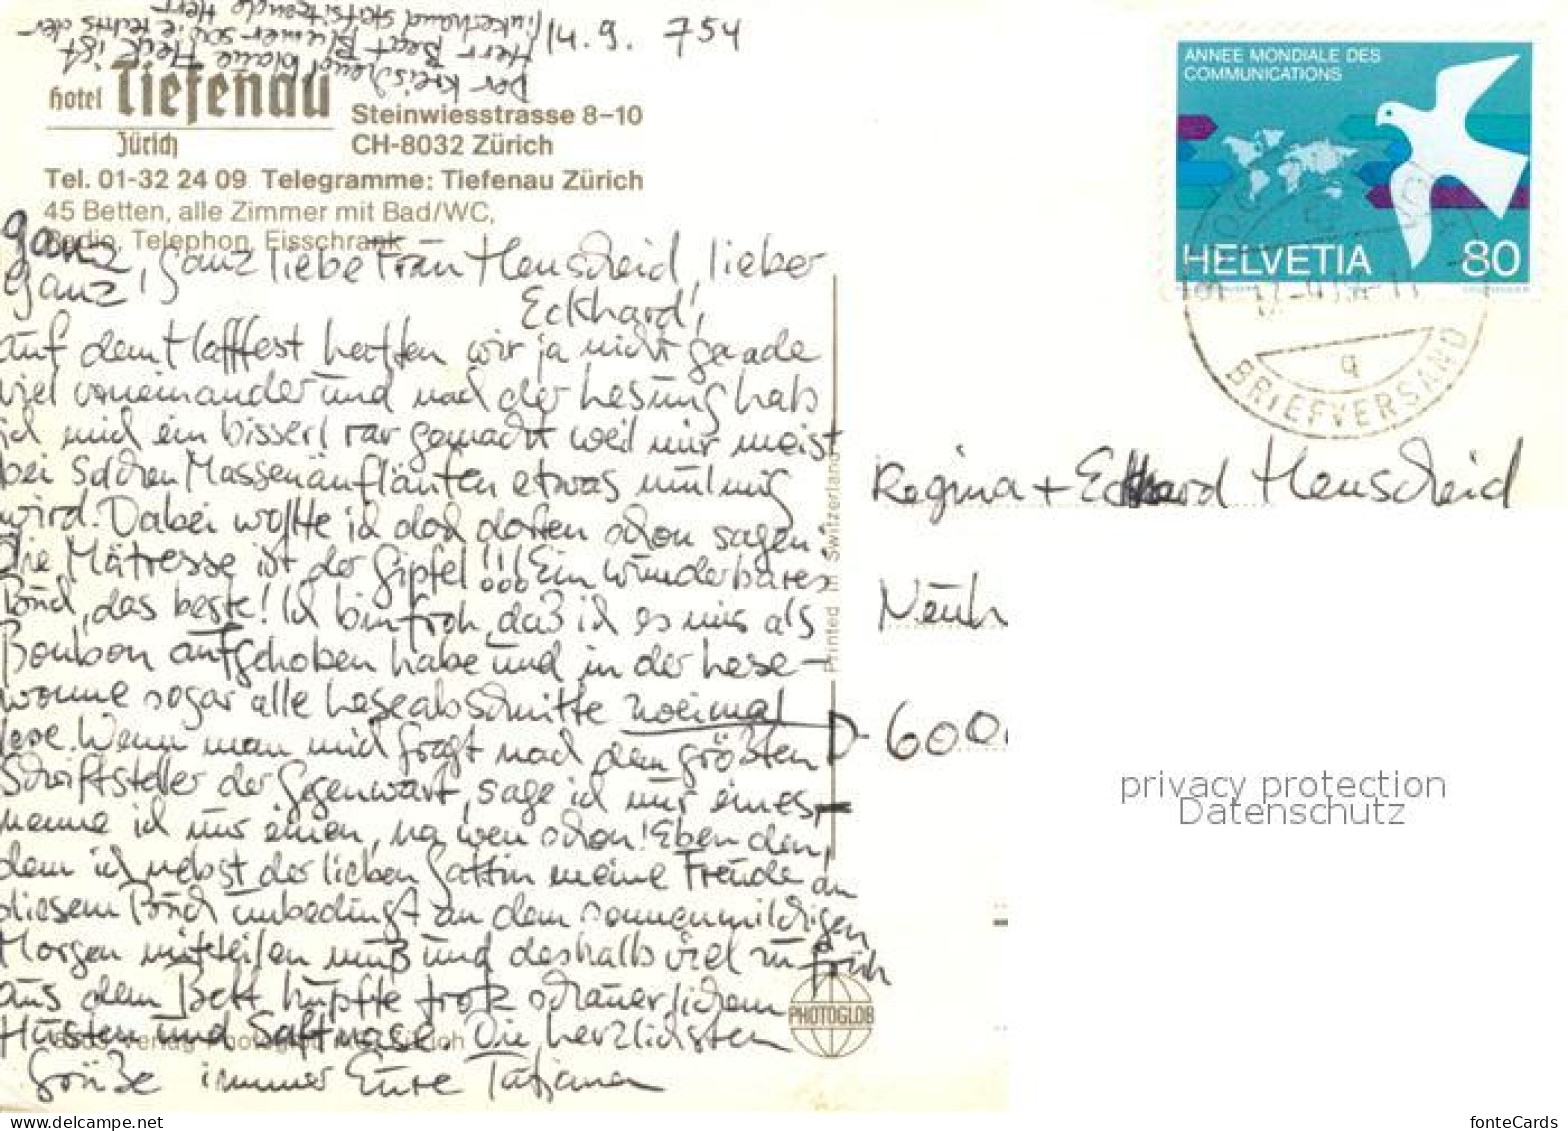 14.9. 754
Der kreischend blaue Fleck ist
Herr Beat Blumer sowie rechts der
linkerhand sitzende Herr
hotel Tiefenau
Zürich
Steinwiesstrasse 8–10
CH-8032 Zürich
Tel. 01-32 24 09 Telegramme: Tiefenau Zürich
45 Betten, alle Zimmer mit Bad/WC,
Radio, Telephon, Eisschrank
ganz
ganz, ganz liebe Frau Henscheid, lieber
Eckhard,
auf dem Hoffest hatten wir ja nicht gerade
viel voneinander und nach der Lesung hab
ich mich ein bisserl rar gemacht weil mir meist
bei solchen Massenaufläufen etwas mulmig
wird. Dabei wollte ich doch dorten schon sagen:
Die Mätresse ist der Gipfel!!! Ein wunderbares
Buch, das beste! Ich bin froh, daß ich es mir als
Bonbon aufgehoben habe und in der Lese-
wonne sogar alle Leseabschnitte zweimal
lese. Wenn man mich fragt nach dem größten
Schriftsteller der Gegenwart, sage ich nur eines,
nenne ich nur einen, na wen schon! Eben den,
dem ich nebst der lieben Gattin meine Freude an
diesem Buch unbedingt an dem sonnenmilchigen
Morgen mitteilen muß und deshalb viel zu früh
aus dem Bett hüpfte trotz schauerlichem
Husten und Saftnase. Die herzlichsten
Grüße immer Eure Tatjana
Printed in Switzerland
PHOTOGLOB
ANNEE MONDIALE DES
COMMUNICATIONS
HELVETIA 80
BRIEFVERSAND
q
Regina + Eckhard Henscheid
Neuh
D-600
privacy protection
Datenschutz
delcampe.net
fonteCards